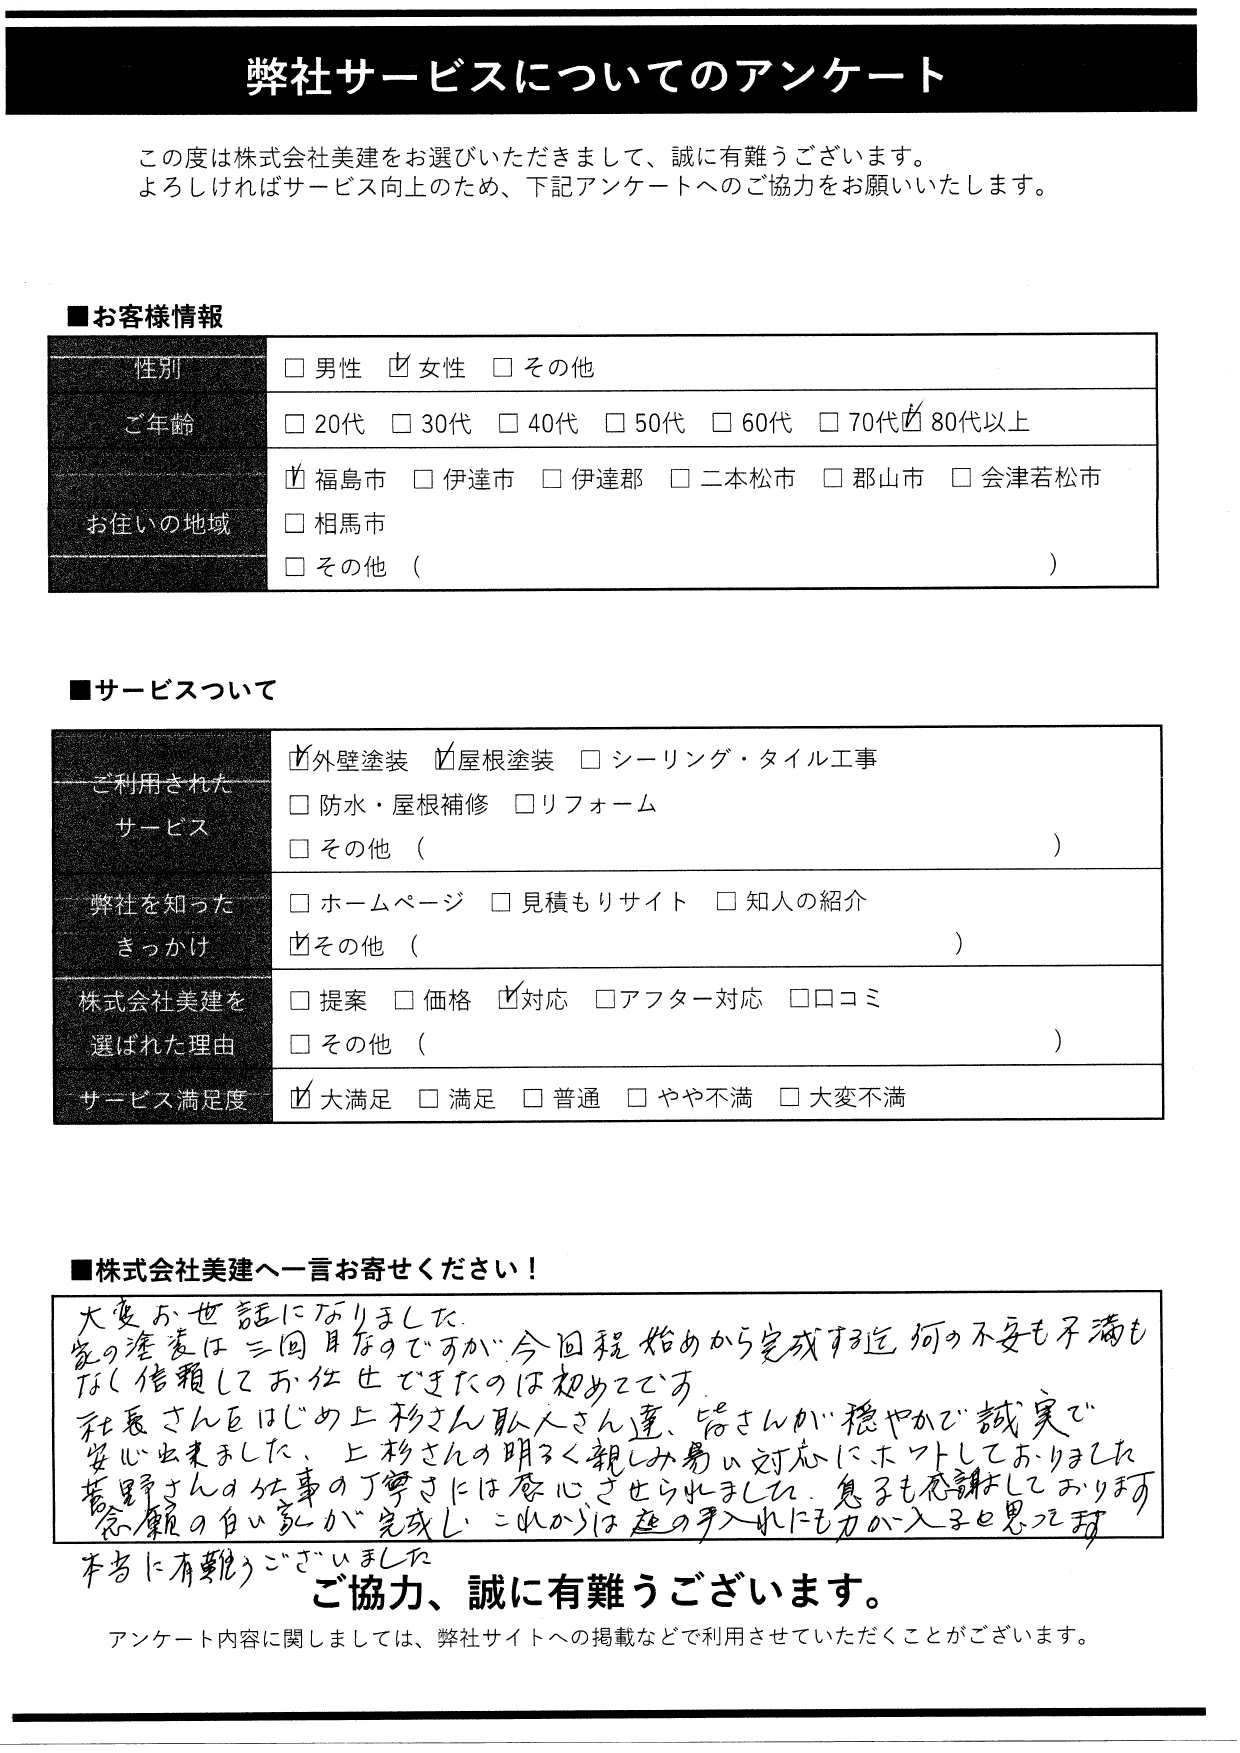 弊社サービスについてのアンケート
この度は株式会社美建をお選びいただきまして、誠に有難うございます。
よろしければサービス向上のため、下記アンケートへのご協力をお願いいたします。
■お客様情報
性別 □ 男性 ☑ 女性 □ その他
ご年齢 □ 20代 □ 30代 □ 40代 □ 50代 □ 60代 □ 70代 ☑ 80代以上
お住いの地域 ☑ 福島市 □ 伊達市 □ 伊達郡 □ 二本松市 □ 郡山市 □ 会津若松市
□ 相馬市
□ その他 ( )
■サービスついて
ご利用された
サービス
☑外壁塗装 ☑屋根塗装 □ シーリング・タイル工事
□ 防水・屋根補修 □リフォーム
□ その他 ( )
弊社を知った
きっかけ
□ ホームページ □ 見積もりサイト □ 知人の紹介
☑その他 ( )
株式会社美建を
選ばれた理由
□ 提案 □ 価格 ☑対応 □アフター対応 □口コミ
□ その他 ( )
サービス満足度 ☑ 大満足 □ 満足 □ 普通 □ やや不満 □ 大変不満
■株式会社美建へ一言お寄せください！
大変お世話になりました.
家の塗装は三回目なのですが今回程始めから完成する迄何の不安も不満も
なく信頼してお任せできたのは初めてです.
社長さんをはじめ上杉さん職人さん達、皆さんが穏やかで誠実で
安心出来ました、上杉さんの明るく親しみ易い対応にホットしておりました
菅野さんの仕事の丁寧さには感心させられました. 息子も感謝しております
念願の白い家が完成し これからは庭の手入れにも力が入ると思ってます
本当に有難うございました
ご協力、誠に有難うございます。
アンケート内容に関しましては、弊社サイトへの掲載などで利用させていただくことがございます。